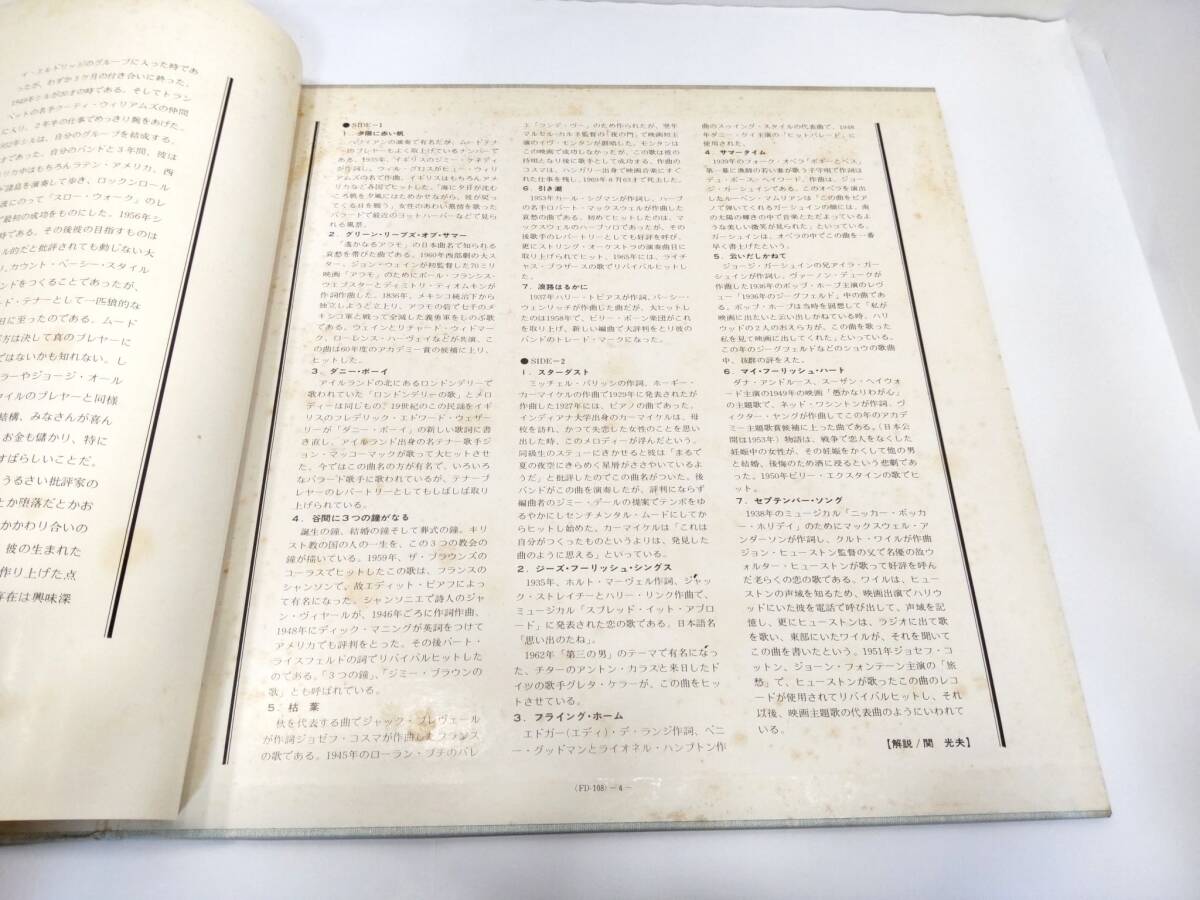 イ・エルドリッジのグループに入った時であ
ったが、わずか3ケ月の付き合いに終った。
1949年シルが20才の時である。そしてトラン
ペットの名手クーティ・ウィリアムズの仲間
に入り、2年半の仕事でめっきり腕をあげた。
952年シルは、自分のグループを結成する。
才であった。自分のバンドと3年間、彼は
リカ中はもちろんラテン・アメリカ、西
ド諸島を演奏して歩き、ロックンロール
波にのって「スロー・ウォーク」のレ
で最初の成功をものにした。1956年シ
時である。その後彼の目指すものは
ル的だと批評されても動じない大
り、カウント・ベーシー・スタイル
ンドをつくることであったが、
ド・テナーとして一匹狼的な
日に至ったのである。ムード
方は決して真のプレヤーに
ではないかも知れない。し
ラーやジョージ・オール
イルのプレヤーと同様
結構、みなさんが喜ん
お金も儲かり、特に
すばらしいことだ。
うるさい批評家の
とか堕落だとかお
かかわり合いの
彼の生まれた
作り上げた点
存在は興味深
●SIDE-1
1. 夕陽に赤い帆
ハワイアンの演奏で有名だが、ムードテナ
ーのプレヤーもよく取上げているナンバーで
ある。1935年、イギリスのジミー・ケネディ
が作詞し、ウィル・グロスがヒュー・ウィリ
アムズの名で作曲、イギリスはもちろんアメ
リカなど各国でヒットした。「海に夕日が沈む
ころ帆を夕風にはためかせながら、彼が戻っ
てくる日を願う」女性のあわい慕情を歌った
バラードで最近のヨットハーバーなどで見ら
れる風景。
2. グリーン・リーブズ・オブ・サマー
「遙かなるアラモ」の日本曲名で知られる
哀愁を帯びた曲である。1960年西部劇の大ス
ター、ジョン・ウェインが初監督した70ミリ
映画「アラモ」のためにポール・フランシス・
ウェブスターとディミトリ・ティオムキンが
作詞作曲した。1836年、メキシコ統治下から
独立しようと立上り、アラモの砦で七千のメ
キシコ軍と戦って全滅した義勇軍をしのぶ歌
である。ウェインとリチャード・ウィドマー
ク、ローレンス・ハーヴェイなどが共演、こ
の曲は60年度のアカデミー賞の候補に上り、
ヒットした。
3. ダニー・ボーイ
アイルランドの北にあるロンドンデリーで
歌われていた「ロンドンデリーの歌」とメロ
ディーは同じもの。19世紀のこの民謡をイギ
リスのフレデリック・エドワード・ウェザー
リーが「ダニー・ボーイ」の新しい歌詞に書
き直し、アイルランド出身の名テナー歌手ジ
ョン・マッコーマックが歌って大ヒットさせ
た。今ではこの曲名の方が有名で、いろいろ
なバラード歌手に歌われているが、テナープ
レヤーのレパートリーとしてもしばしば取り
上げられている。
4. 谷間に3つの鐘がなる
誕生の鐘、結婚の鐘そして葬式の鐘。キリ
スト教の国の人の一生を、この3つの教会の
鐘が描いている。1959年、ザ・ブラウンズの
コーラスでヒットしたこの歌は、フランスの
シャンソンで、故エディット・ピアフによっ
て有名になった。シャンソニエで詩人のジャ
ン・ヴィヤールが、1946年ごろに作詞作曲、
1948年にディック・マニングが英詞をつけて
アメリカでも評判をとった。その後バート・
ライスフェルドの詞でリバイバルヒットした
のである。「3つの鐘」、「ジミー・ブラウンの
歌」とも呼ばれている。
5. 枯 葉
秋を代表する曲でジャック・プレヴェール
が作詞ジョゼフ・コスマが作曲したフランス
の歌である。1945年のローラン・プチのバレ
エ「ランデ・ヴー」のため作られたが、翌年
マルセル・カルネ監督の「夜の門」で映画初主
演のイヴ・モンタンが創唱した。モンタンは
この映画で成功しなかったが、この歌は彼の
持唄となり後に歌手として成功する。作曲の
コスマは、ハンガリー出身で映画音楽にすぐ
れた仕事を残し、1969年8月63才で死亡した。
6. 引き潮
1953年カール・シグマンが作詞し、ハープ
の名手ロバート・マックスウェルが作曲した
哀愁の曲である。初めてヒットしたのは、マ
ックスウェルのハープソロであったが、その
後歌手のレパートリーとしても好評を呼び、
更にストリング・オーケストラの演奏曲目に
取り上げられてヒット。1965年には、ライチ
ャス・ブラザースの歌でリバイバルヒットし
た。
7. 浪路はるかに
1937年ハリー・トビアスが作詞、パーシー・
ウェンリッチが作曲した曲だが、大ヒットし
たのは1958年で、ビリー・ボーン楽団がこれ
を取り上げ、新しい編曲で大評判をとり彼の
バンドのトレード・マークになった。
●SIDE-2
1. スターダスト
ミッチェル・パリッシの作詞、ホーギー・
カーマイケルの作曲で1929年に発表されたが
作曲した1927年には、ピアノの曲であった。
インディアナ大学出身のカーマイケルは、母
校を訪れ、かつて失恋した女性のことを思い
出した時、このメロディーが浮んだという。
同級生のステューにきかせると彼は「まるで
夏の夜空にきらめく星屑がささやいているよ
うだ」と批評したのでこの曲名がついた。後
バンドがこの曲を演奏したが、評判にならず
編曲者のジミー・デールの提案でテンポをゆ
るやかにしセンチメンタル・ムードにしてか
らヒットし始めた。カーマイケルは「これは
自分がつくったものというよりは、発見した
曲のように思える」といっている。
2. ジーズ・フーリッシュ・シングス
1935年、ホルト・マーヴェル作詞、ジャッ
ク・ストレイチーとハリー・リンク作曲で、
ミュージカル「スプレッド・イット・アブロ
ード」に発表された恋の歌である。日本語名
「思い出のたね」。
1962年「第三の男」のテーマで有名になっ
た、チターのアントン・カラスと来日したド
イツの歌手グレタ・ケラーが、この曲をヒッ
トさせている。
3. フライング・ホーム
エドガー(エディ)・デ・ランジ作詞、ベニ
ー・グッドマンとライオネル・ハンプトン作
曲のスゥイング・スタイルの代表曲で、1948
年ダニー・ケイ主演の「ヒットパレード」に
使用された。
4. サマータイム
1939年のフォーク・オペラ「ポギーとベス」
第一幕に漁師の若い妻が歌う子守唄で作詞は
デュ・ボース・ヘイワード、作曲は、ジョー
ジ・ガーシュインである。このオペラを演出
したルーベン・マムリアンは「この曲をピア
ノで弾いてくれるガーシュインの顔には、南
の太陽の輝きの中で音楽とただよっているよ
うな楽しい微笑が見られた」といっている。
ガーシュインは、オペラの中でこの曲を一番
早く書上げたという。
5. 云いだしかねて
ジョージ・ガーシュインの兄アイラ・ガー
シュインが作詞し、ヴァーノン・デュークが
作曲した1936年のボップ・ホープ主演のレヴ
ュー「1936年のジーグフェルド」中の曲であ
る。ボップ・ホープは当時を回想して「私が
映画に出たいと云い出しかねている時、ハリ
ウッドの2人のおえら方が、この曲を歌った
私を見て映画に出してくれた」といっている。
この年のジーグフェルドなどのショウの歌曲
中、抜群の評をえた。
6. マイ・フーリッシュ・ハート
ダナ・アンドルース、スーザン・ヘイウォ
ード主演の1949年の映画「愚かなりわが心」
の主題歌で、ネッド・ワシントンが作詞、ヴ
ィクター・ヤングが作曲してこの年のアカデ
ミー主題歌賞候補に上った曲である。(日本公
開は1953年)物語は、戦争で恋人をなくした
妊娠中の女性が、その妊娠をかくして他の男
と結婚、後悔のため酒に浸るという悲劇であ
った。1950年ビリー・エクスタインの歌でヒ
ット。
7. セプテンバー・ソング
1938年のミュージカル「ニッカー・ボッカ
ー・ホリデイ」のためにマックスウェル・ア
ンダーソンが作詞し、クルト・ワイルが作曲
ジョン・ヒューストン監督の父で名優の故ウ
ォルター・ヒューストンが歌って好評を呼ん
だ老らくの恋の歌である。ワイルは、ヒュー
ストンの声域を知るため、映画出演でハリウ
ッドにいた彼を電話で呼び出して、声域を記
憶し、更にヒューストンは、ラジオに出て歌
を歌い、東部にいたワイルが、それを聞いて
この曲を書いたという。1951年ジョセフ・コ
ットン、ジョーン・フォンテーン主演の「旅
愁」で、ヒューストンが歌ったこの曲のレコ
ードが使用されてリバイバルヒットし、それ
以後、映画主題歌の代表曲のようにいわれて
いる。
【解説/関 光夫】
(FD-108) -4-